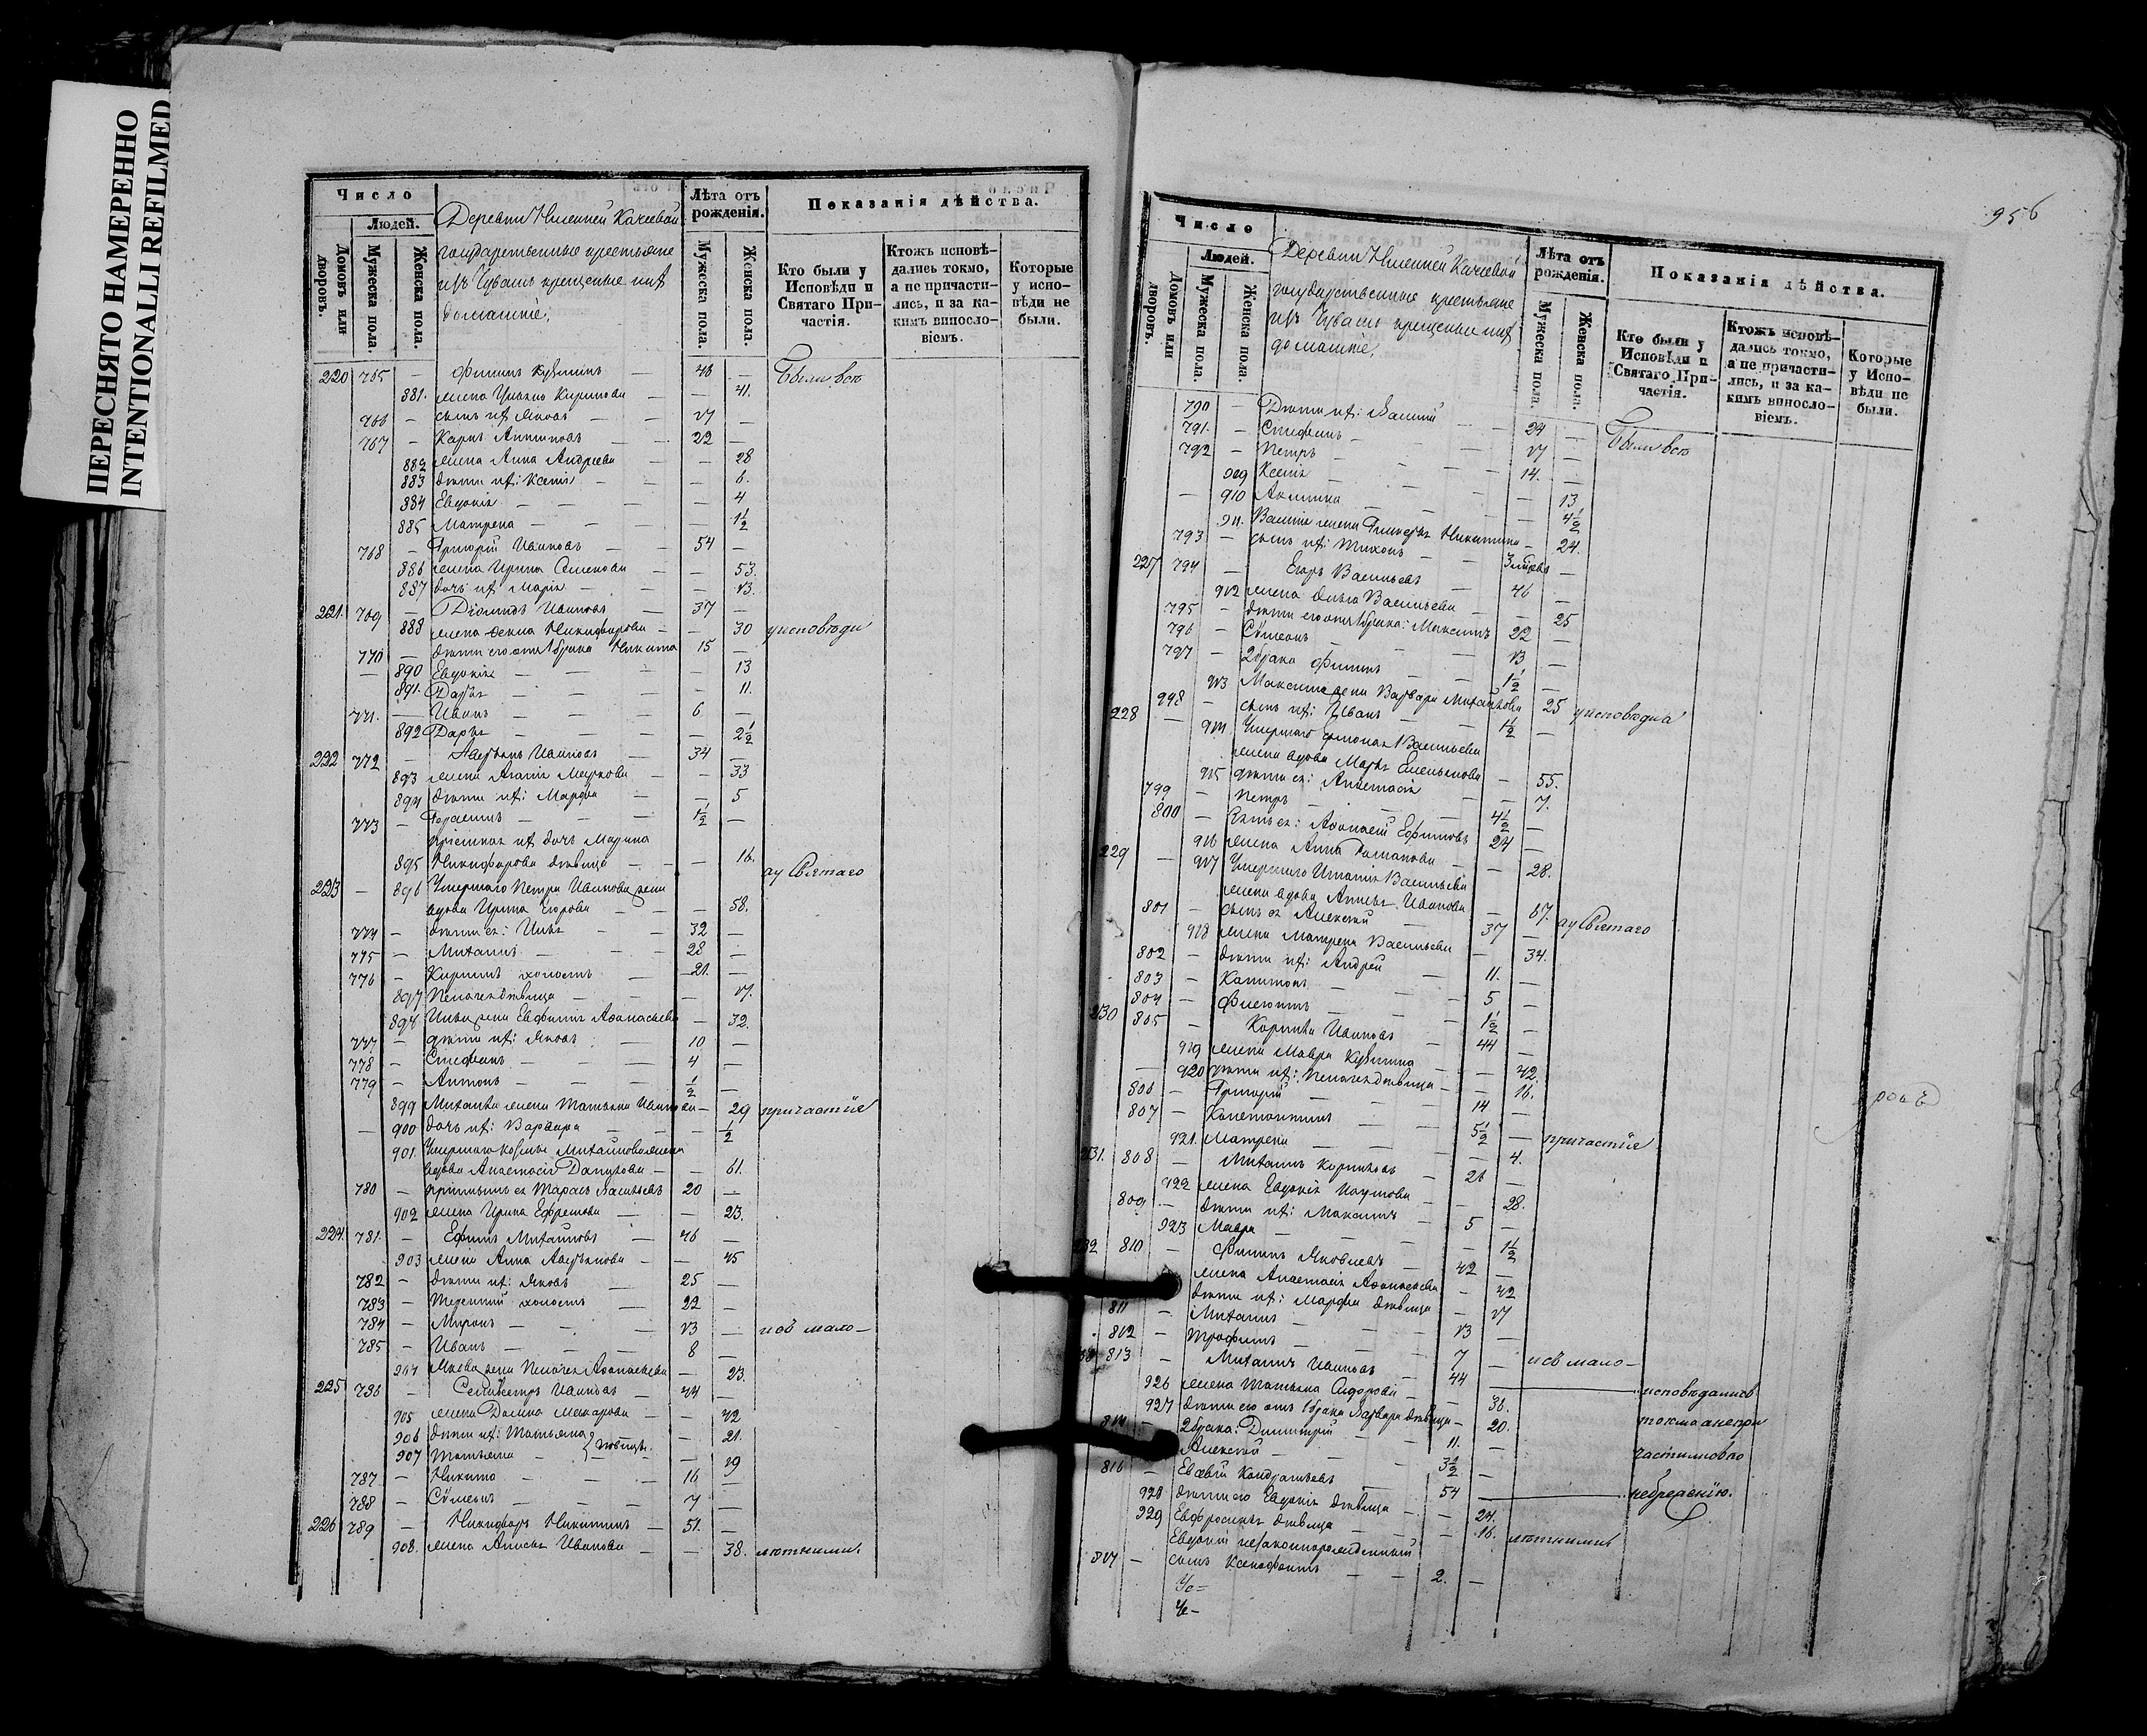 ПЕРЕСНЯТО НАМЕРЕННО
INTENTIONALLI REFILMED
Число
Людей.
Домовъ или дворовъ.
Мужеска пола.
Женска пола.
Деревни Нижней Качеевой
государственные крестьяне
изъ Чувашъ крещеные и их
домашніе,
Лѣта отъ рожденія.
Мужеска пола.
Женска пола.
Показанія дѣйства.
Кто были у Исповѣди и Святаго Причастія.
Ктожъ исповѣдались токмо, а не причастились, и за какимъ винословіемъ.
Которые у исповѣди не были.
220 765 — Филипъ Кузминъ — 46 — Были всѣ
881. жена Ульяна Кирилова — — 41.
766 — сынъ их Яковъ — 17 —
767 — Карпъ Антиповъ — 22 —
882 жена Анна Андреева — — 28
883 дѣти их: Ксенія — — 6.
884 Евдокія — — 4
885 Матрена — — 1½
768 — Григорій Ивановъ — 54 —
886 жена Ирина Семенова — — 53.
887 дочь их Марія — — 13.
221. 769 — Діомидъ Ивановъ — 37 —
888 жена Фекла Никифорова — — 30 уисповѣди
770 — дѣти его от 1 брака Никита 15 —
890 Евдокія — — 13
891. Дарья — — 11.
771. — Иванъ — 6 —
892 Дарья — — 2½
222 772 — Ивановъ — 34 —
893 жена Агапія Маркова — — 33
894 дѣти их: Марфа — — 5
773 — Герасимъ — 1½ —
их дочь Марина
895 Никифорова дѣвица — — 16. ау Святаго
223 — 896 Умершаго Петра Иванова жена
вдова Ирина Егорова — — 58.
774 — дѣти ея: Илья — 32 —
775 — Михаилъ — 28 —
776 — Кирилъ холостъ — 21. —
897 Пелагея дѣвица — — 17.
898 Ильи жена Евфимія Афанасьева — 32.
777 — дѣти их: Яковъ — 10 —
778 — Стефанъ — 4 —
779 — Антонъ — ½ —
899 Михаила жена Татьяна Иванова — 29 причастія
900 дочь их: Варвара — — ½
901. Умершаго Козьмы Михайлова жена
вдова Анастасія Данилова — — 61.
780 — ея Тарасъ Васильевъ 20 —
902 жена Ирина Ефремова — — 23.
224. 781. — Ефимъ Михайловъ — 46 —
903 жена Анна — — 45
782 — дѣти их: Яковъ — 25 —
783 — Терентій холостъ — 22 —
784 — Миронъ — 13 — исъ мало—
785 — Иванъ — 8 —
904 Якова жена Пелагея Афанасьева — 23.
225 786 — Селивестръ Ивановъ — 44 —
905 жена Домна Макарова — — 42
906 дѣти их: Татьяна — 21.
907 Татьяна — — 19
787 — Никита — 16 —
788 — Сѵмеонъ — 7 —
226 789 — Никифоръ Никитинъ — 51. —
908. жена Анисья Иванова — — 38. лѣтними.
956
Число
Людей.
Домовъ или дворовъ.
Мужеска пола.
Женска пола.
Деревни Нижней Качеевой
государственные крестьяне
изъ Чувашъ крещеные и их
домашніе,
Лѣта отъ рожденія.
Мужеска пола.
Женска пола.
Показанія дѣйства.
Кто были у Исповѣди и Святаго Причастія.
Ктожъ исповѣдались токмо, а не причастились, и за какимъ винословіемъ.
Которые у Исповѣди не были.
790 — Дѣти их: Василій — 24 — Были всѣ
791. — Стефанъ — 17 —
792 — Петръ — 14. —
909 Ксенія — — 13
— 910 Акилина — — 4½
911. Василія жена Гликерія Никитина — 24.
793 — сынъ их: Тихонъ —
227 794 — Егоръ Васильевъ — 46 —
912 жена Ѳекла Васильева — — 25
795 — дѣти его от 1 брака: Максимъ 22 —
796 — Сѵмеонъ — 13 —
797 — 2 брака Филипъ — 1½ —
913 Максима жена Варвара Михайлова — 25 уисповѣдиа
798 — сынъ их: Иванъ — 1½ —
228 — 914 Умершаго Васильева
жена вдова Марья Емельянова — 55.
915 дѣти ея: Анастасія — — 7.
799 — Петръ — 4½ —
800 — Зять ея: Афанасій Ефимовъ 24 —
916 жена Анна Романова — — 28.
229 — 917 Умершаго Игнатія Васильева
жена вдова Анисья Иванова — 67. ау Святаго
801 — сынъ ея Алексѣй — 37 —
918 жена Матрена Васильева — 34.
802 — дѣти их: Андрей — 11. —
803 — Капитонъ — 5 —
804 — — 1½ —
230 805 — Корнилъ Ивановъ — 44 —
919 жена Мавра Кузмина — — 42.
— 920 дѣти их: Пелагея дѣвица — 16.
806 — Григорій — 14 —
807 — Константинъ — 5½ — причастія
921. Матрена — — 4.
231. 808 — Михаилъ Корниловъ — 26 —
922 жена Евдокія Наумова — — 28.
809 — дѣти их: Максимъ — 5 —
923 Мавра — — 1½
232 810 — Филипъ Яковлевъ — 42 —
жена Анастасія Афанасьева — 42
дѣти их: Марфа дѣвица — 17
811 — Михаилъ — 13 —
812 — Трофимъ — 7 — исъ мало—
813 — Михаилъ Ивановъ — 44 — исповѣдались
926 жена Татьяна Сидорова — — 36.
927 дѣти его отъ 1 брака Варвара дѣвица — 20. токмо а непри
814 — 2 брака: Дмитрій — 11. —
Алексѣй — 3½ — частились по
816 — Евсевій Кондратьевъ — 54 — небреженію.
928 дѣти его Евдокія дѣвица — 24.
929 Евфросинья дѣвица — — 16. лѣтними
Евдокіи незаконнорожденный
817 — сынъ Ксенофонтъ — 2. —